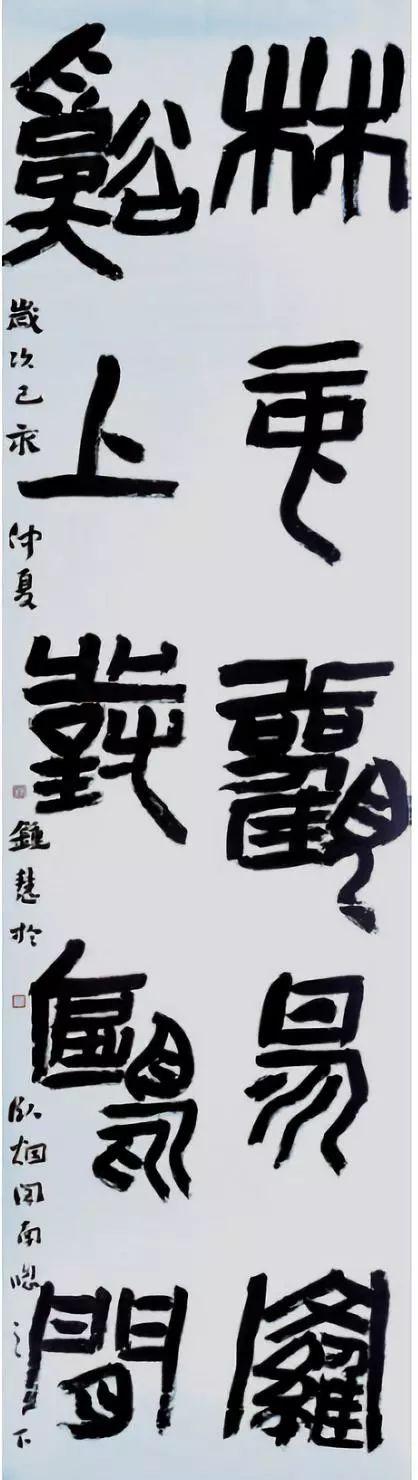 林中觀易罷
谿上對鷗閒
歲次己亥仲夏鍾慧於卧烟閣南牕之下